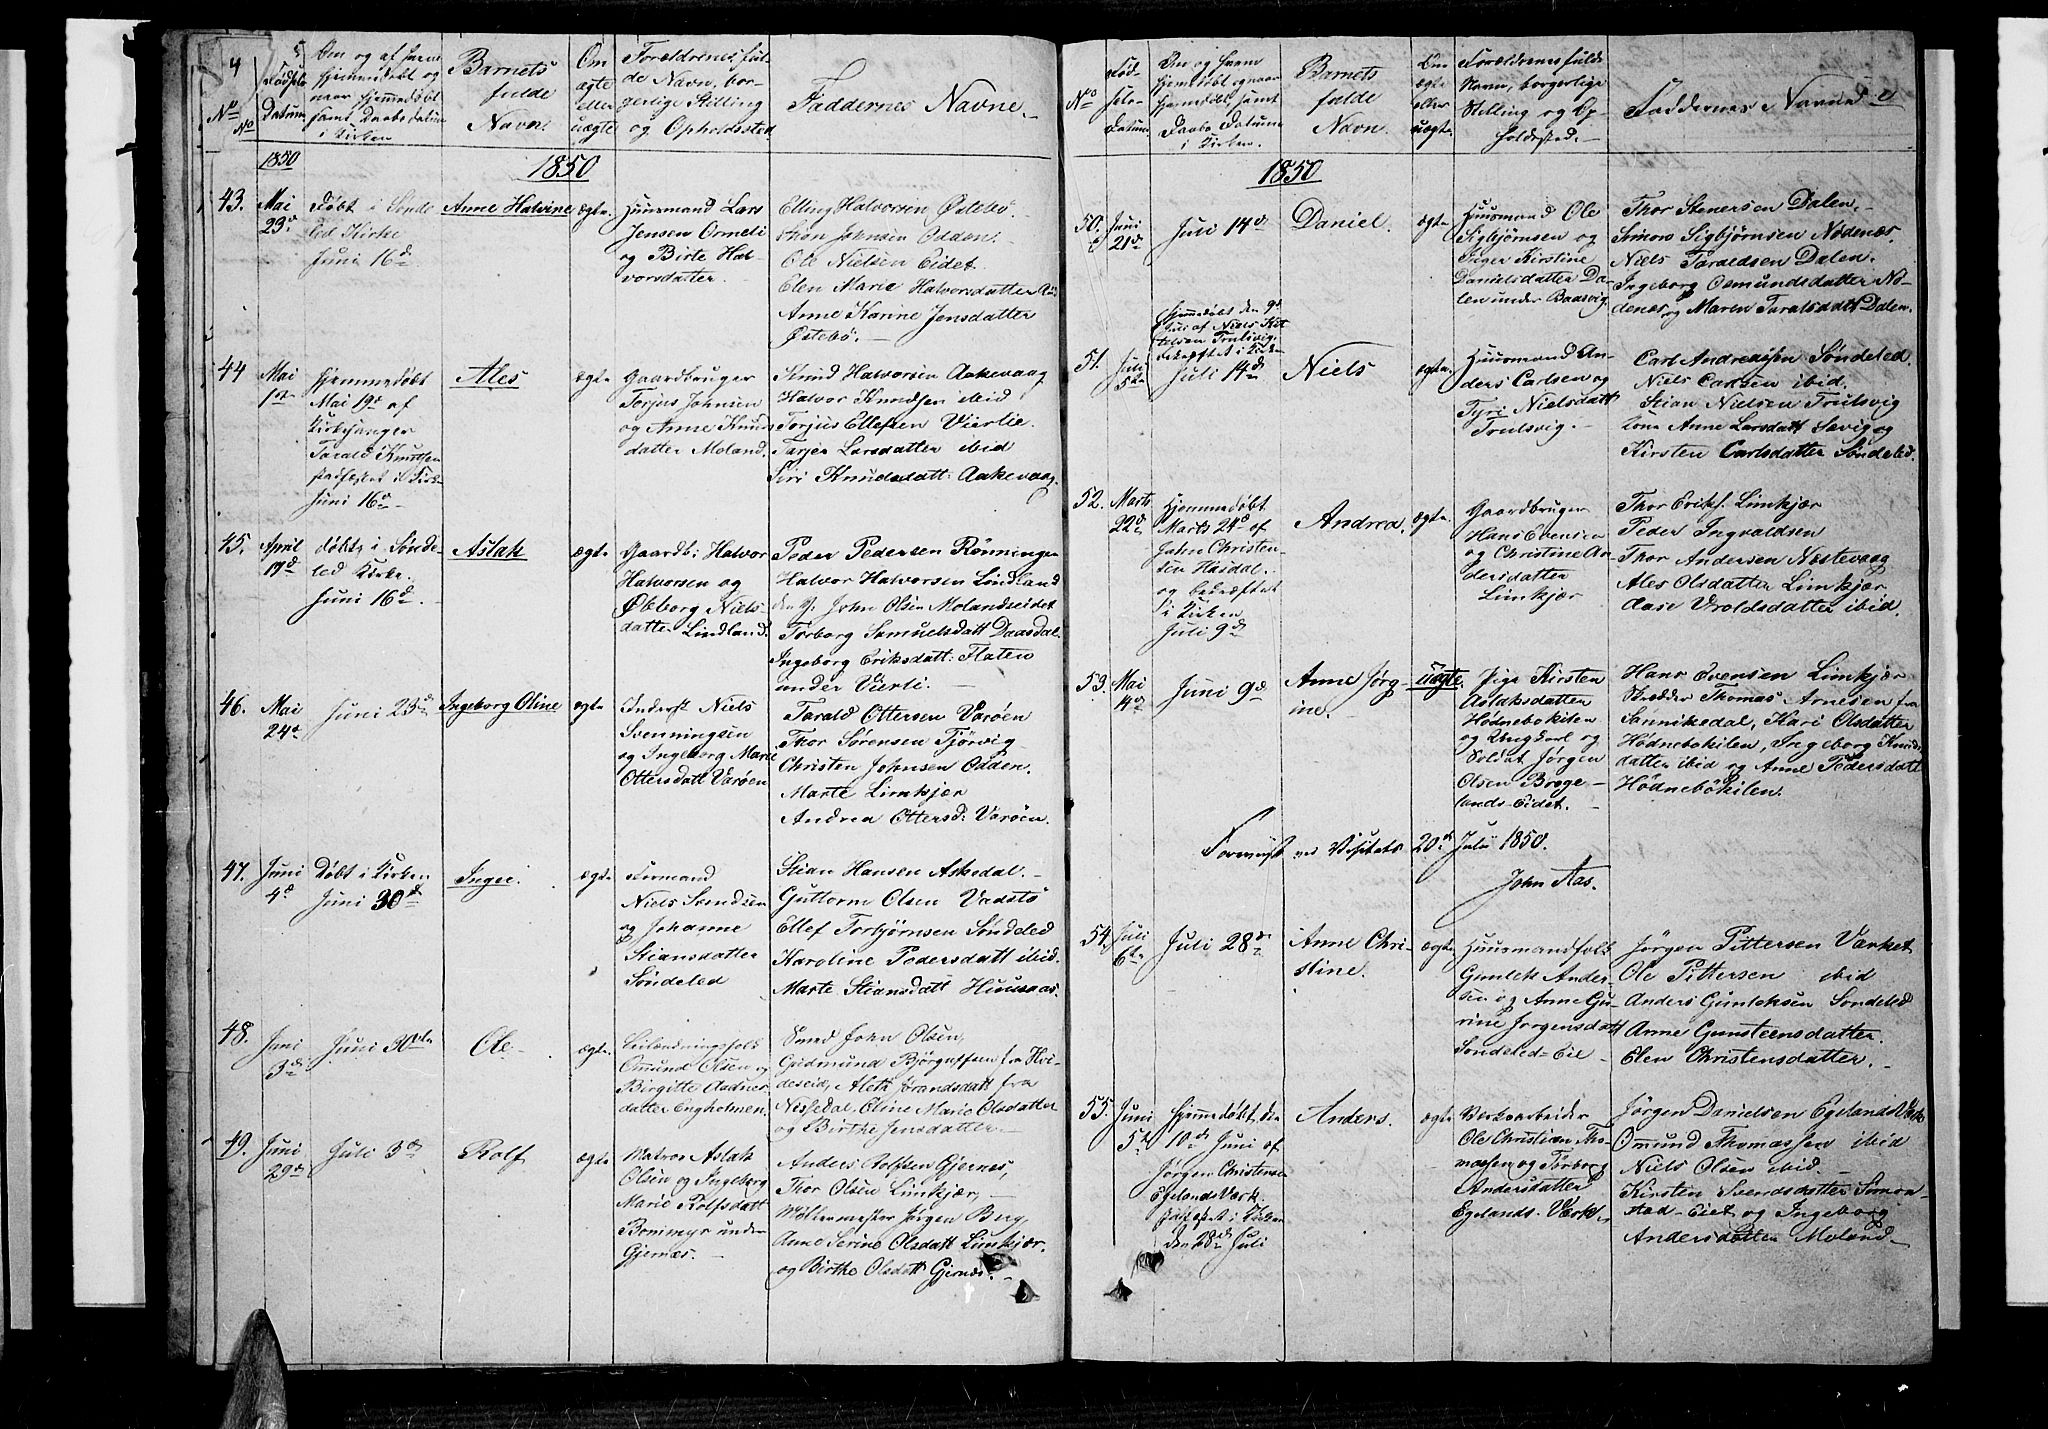 4
No
No
Fødsels
Datum
Om og af hvem
hjemmedøbt og
naar hjemmedøbt
samt Daabs Datum
i Kirken
Barnets
fulde
Navn.
Om
ægte
eller
uægte
Forældrenes ful-
de Navn, bor-
gerlige Stilling
og Opholdssted
Faddernes Navne.
1850
1850
43.
Mai
23de
Døbt i Sønde
led Kirke
Juni 16de
Anne Halvine
ægte
Huusmand Lars
Jensen Ormeli
og Birte Hal-
vorsdatter.
Elling Halvorsen Østebø.
Thor Johnsen Odden.
Ole Nielsen Eidet
Elen Marie Halvorsdatter
Anne Karine Jensdatter
Østebø.
44
Mai
Hjemmedøbt
Mai 19de af
Kirkesanger
Tarald Knutsen
stadfæstet i Kirk.
Juni 16de
Ales
ægte
Gaardbruger
Torjus Johnsen
og Anne Knuds
datter Moland.
Knud Halvorsen Aakevaag
Halvor Knudsen ibid
Torjus Ellefsen Vierlie.
Tarjer Larsdatter ibid
Siri Knudsdatt: Aakevaag.
45.
April
17de
døbt i Sønde-
led Kirke.
Juni 16de
Aslak
ægte
Gaardb: Halvor
Halvorsen og
Øbborg Niels-
datter Lindland.
Peder Pedersen Rønningen
Halvor Halvorsen Lindland
den y. John Olsen Molandseidet
Torborg Samuelsdatt Daasdal
Ingeborg Eriksdatt: Flaten
under Vierli.
46.
Mai
24de
Juni 23de
Ingeborg Oline
ægte
Inderst Niels
Svenningsen
og Ingeborg Marie
Ottersdatt Varøen
Tarald Ottersen Varøen
Thor Sørensen Tjørvig
Christen Johnsen Odden.
Marte Limkjær
Andrea Ottersd: Varøen.
47.
Juni
4de
Døbt i Kirken
Juni 30de
Inger.
ægte
Formand
Niels Svendsen
og Johanne
Stiansdatter
Søndeled
Stian Hansen Askedal.
Guttorm Olsen Vadstø
Ellef Torbjørnsen Søndeled
Karoline Pedersdatt ibid.
Marte Stiansdatt Huusaas.
48.
Juni
3de
Juni 30te
Ole
ægte
Omund Olsen og
Birgitte Aadner
datter Engholmen.
Smed John Olsen,
Gudmund Bjørgufsen fra Hvi-
deseid, Aleth Brandsdatt fra
Nissedal, Oline Marie Olsdatter
og Birthe Jensdatter.
49.
Juni
29de
Juli 3de
Rolf
ægte
Matros Aslak
Olsen og Ingeborg
Marie Rolfsdatt
Bommyr under
Gjernæs.
Anders Rolfsen Gjernes,
Thor Olsen Limkjær,
Møllermester Jørgen Bug,
Anne Serine Olsdatt Limkjær.
og Birthe Olsdatt Gjernæs.
No
Fød-
sels-
Datum
Om og hvem
hjemmedøbt og naar
hjemmedøbt, samt
Daabs Datum
i Kirken.
Barnets
fulde
Navn.
Om
ægte
eller
uægte
Forældrenes fulde
Navn, borgerlige
Stilling og Op-
holdssted.
Faddernes Navne
1850
50.
Juni
21de
Juli 14de
Daniel.
ægte
Huusmand Ole
Sigbjørnsen og
Inger Kirstine
Danielsdatter Da-
len under Baasvig.
Thor Stenersen Dalen.
Simon Sigbjørnsen Nødenæs.
Niels Taraldsen Dalen.
Ingeborg Osmundsdatter Nø-
denæs og Maren Taralsdatt Dalen.
51.
Juli
5te
Hjemmedøbt den 9de
Juli af Niels Kit-
telsen Trulsvig.
bekræftet i Kirken
Juli 14de
Niels
ægte
Huusmand An-
ders Carlsen og
Tyri Nielsdatt
Trulsvig.
Carl Andreassen Søndeled.
Niels Carlsen ibid.
Stian Nielsen Trulsvig
Kone Anne Larsdatt Savig og
Kirsten Carlsdatter Søndeled.
52.
Marts
22de
Hjemmedøbt
Marts 24de af
John Christen-
sen Hasdal.
og bekræftet
i Kirken
Juli 9de
Andrea.
ægte
Gaardbruger
Hans Evensen
og Christine An-
dersdatter
Limkjær
Thor Eriks. Limkjær
Peder Ingvaldsen
Thor Andersen Næstevaag
Ales Olsdatter Limkjær
Aase Vroldsdatter ibid.
53.
Mai
Juni 9de
Anne Jørg-
ine.
uægte.
Pige Kirsten
Aslaksdatter
Hødnebøkilen
og Ungkarl og
Soldat Jørgen
Olsen Brøge-
lands-Eidet.
Hans Evensen Limkjær
Skrædder Thomas Arnesen fra
Sannikedal, Kari Olsdatter
Hødnebøkilen, Ingeborg Knuds
datter ibid og Anne Pedersdatt
Hødnebøkilen.
Foreviist ved Visitats 20de Juli 1850.
John Aas.
54.
Juli
6te
Juli 28de
Anne Chri-
stine.
ægte
Huusmandsfolk
Gunlek Ander-
sen og Anne Gu-
rine Jørgensdatt
Søndeled-Eie
Jørgen Pittersen Værket
Ole Pittersen ibid
Anders Gunleksen Søndeled
Anne Gunsteensdatter.
Elen Christensdatter.
55.
Juni
5te
Hjemmedøbt den
10de Juni af
Jørgen Christensen
Egelands Værk.
stadfæstet i Kirken
den 28de Juli
Anders.
ægte
Værksarbeider
Ole Christian Tho-
massen og Torborg
Andersdatter
Egelands-Værk.
Jørgen Danielsen Egelands Værk
Omund Thomassen ibid
Niels Olsen ibid.
Kirsten Svendsdatter Simon-
stad-Eiet og Ingeborg
Andersdatter Moland